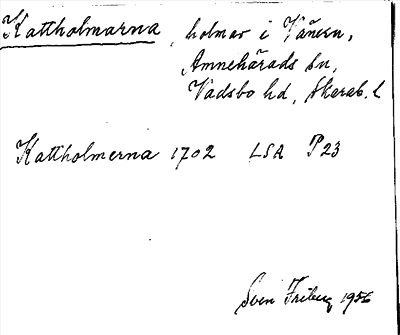 Kattholmarna, holmar i Vänern,
Amnehärads sn,
Vadsbo hd, Skarab. l
Kattholmerna 1702 LSA P23
Sven Friberg 1956